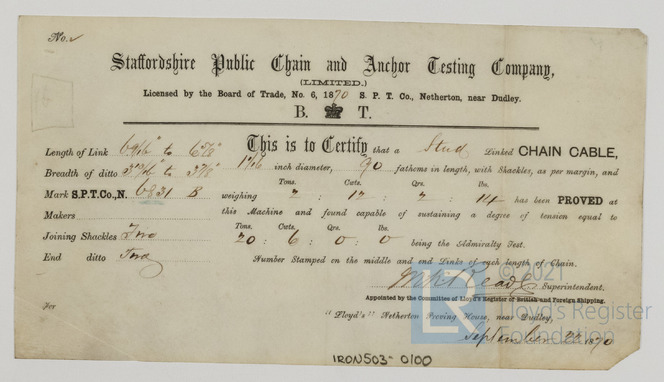 No.
Staffordshire Public Chain and Anchor Testing Company,
(LIMITED.)
Licensed by the Board of Trade, No. 6, 1870 S. P. T. Co., Netherton, near Dudley.
B. T.
This is to Certify that a Stud Linked CHAIN CABLE,
Length of Link 6 9/16" to 6 7/8"
1 7/16 inch diameter, 90 fathoms in length, with Shackles, as per margin, and
Breadth of ditto to 3 7/8"
Tons. Cwts. Qrs. lbs.
Mark S.P.T.Co., N. 6831 B weighing 2 : 12 : 2 : 14 has been PROVED at
Makers this Machine and found capable of sustaining a degree of tension equal to
Tons. Cwts. Qrs. lbs.
Joining Shackles Two 20 : 6 : 0 : 0 being the Admiralty Test.
End ditto Two Number Stamped on the middle and end Links of each length of Chain.
Reade Superintendent.
Appointed by the Committee of Lloyd's Register of British and Foreign Shipping.
For "Lloyd's" Netherton Proving House, near Dudley,
September 22 1870
© 2021
LR Lloyd's Register
Foundation
IRON503-0100